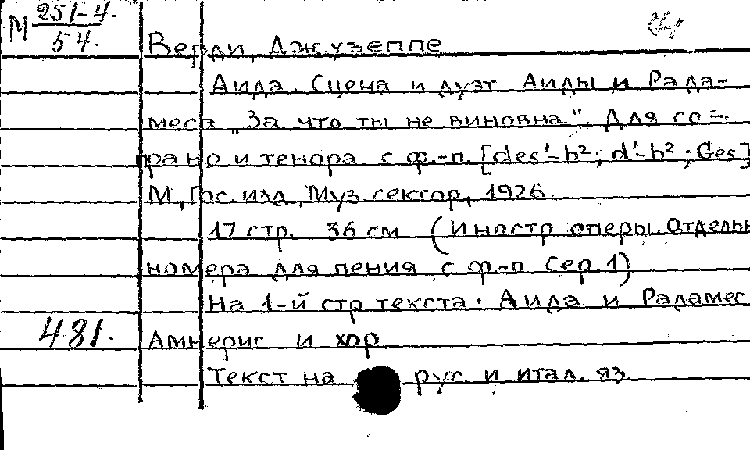 М 251-4.
54.
Верди, Джузеппе
Аида. Сцена и дуэт Аиды и Рада-
меса „За что ты не виновна". Для со-
прано и тенора с ф.-п. [des'-b²; d'-b²; Ges]
М., Гос. изд., Муз. сектор, 1926.
17 стр. 36 см (Иностр. оперы. Отдельн
номера для пения с ф-п. Сер. 1)
На 1-й стр. текста: Аида и Радамес
481. Амнерис и хор
Текст на рус. и итал. яз.